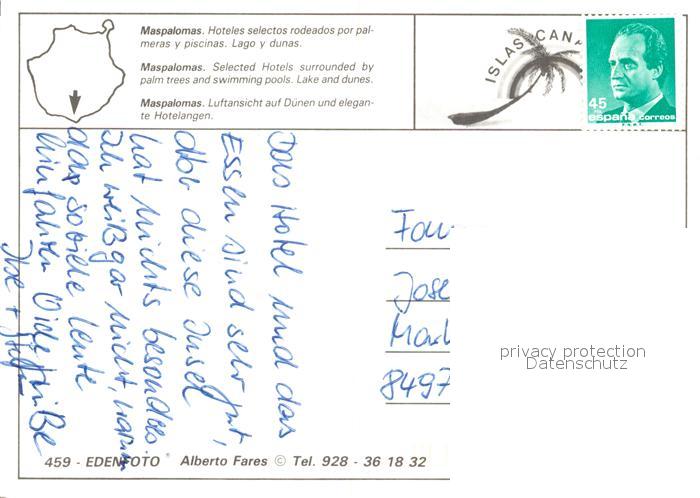 Maspalomas. Hoteles selectos rodeados por pal-
meras y piscinas. Lago y dunas.
Maspalomas. Selected Hotels surrounded by
palm trees and swimming pools. Lake and dunes.
Maspalomas. Luftansicht auf Dünen und elegan-
te Hotelangen.
ISLAS CANA
45
PTA
españa correos
Das Hotel und das
Essen sind sehr gut,
aber diese Insel
hat nichts besonderes.
Ich weiß gar nicht, warum
da so viele Leute
hinfahren. Viele Grüße
Ilse +
Fam
Jose
Mark
8497
privacy protection
Datenschutz
459 - EDENFOTO ® Alberto Fares © Tel. 928 - 36 18 32